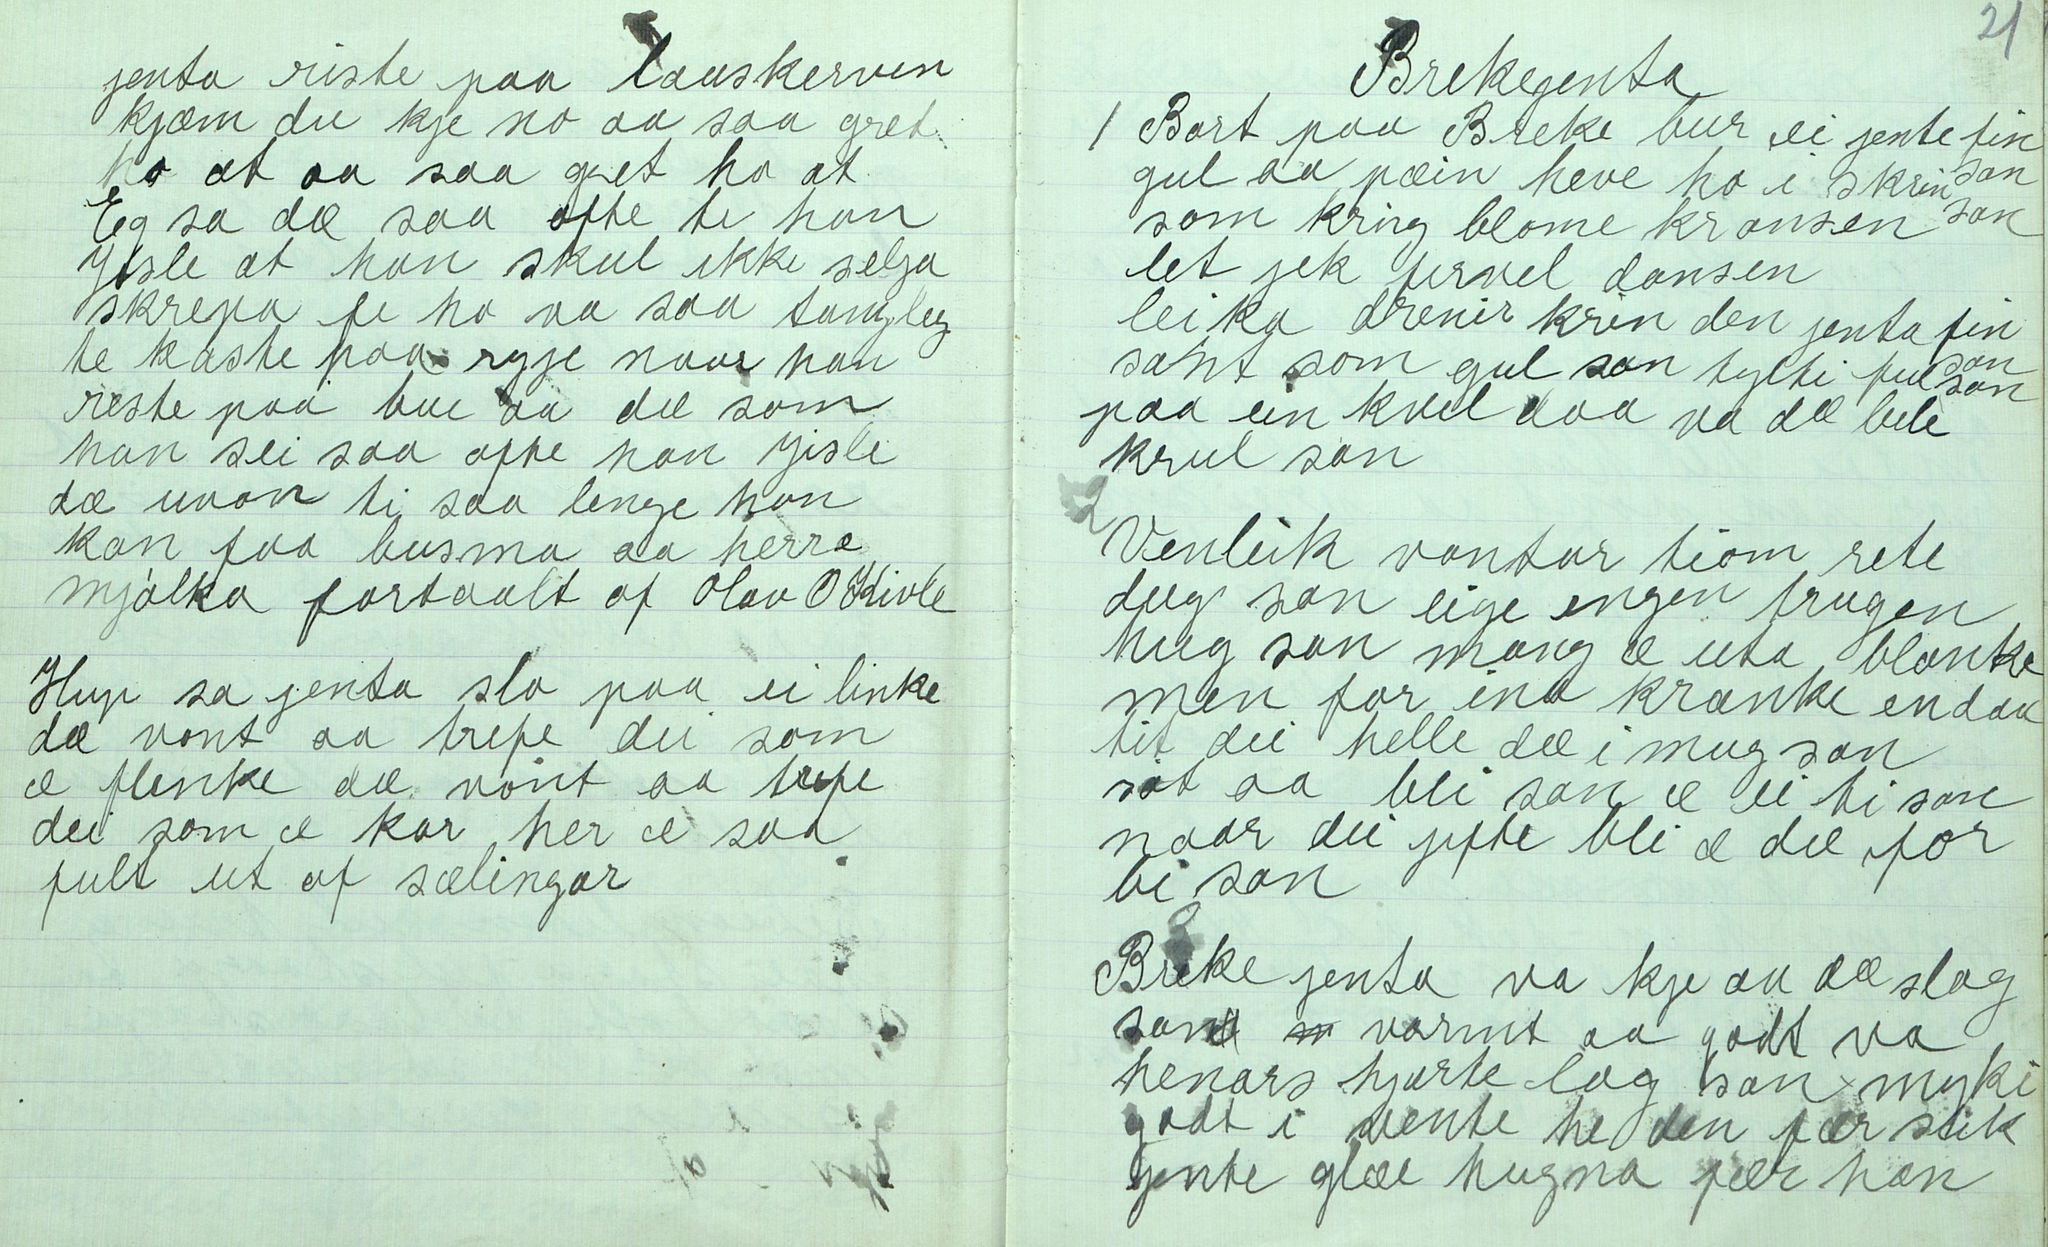 jenta riste paa lauskerven
kjæm du kje no aa saa gret
ho at aa saa gret ho at
Eg sa dæ saa ofte te han
Jisle at han skul ikke selja
skrepa fe ho va saa tungleg
te kaste paa ryje naar han
reste paa bue aa dæ som
han sei saa ofte han Jisle
dæ uvon ti saa lenge han
kan faa busma aa herre
mjølka fortaalt af Olav O Kivle
Hup sa jenta slo paa ei linke
dæ vont aa trefe dei som
æ flinke dæ vont aa trefe
dei som æ kar her æ saa
fult ut af sælingar
21
Brekejenta
1 Bort paa Breke bur ei jente fin
gul aa pæin heve ho i skrin san
som kring blome kransen san
let jek fervel dansen
leika drenir krin den jenta fin
sant som gul san tylti ful san
paa ein kvel daa va dæ bele san
krul san
2
Venleik vantar tiom rete
dug san eige engen trugen
hug san mang æ uta blanke
men for ina kranke endaa
tit dei helle dæ i mug san
sit aa bli san æ ei ti san
naar dei jifte bli æ dæ for
bi san
3
Breke jenta va kje aa dæ slag
san varmt aa godt va
henars hjarte lag san myki
godt i vente he den fær slik
jente glæe hugna fær han